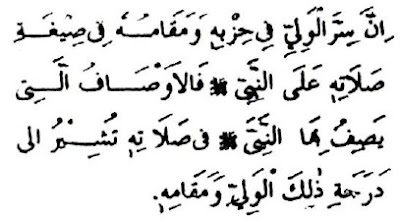 اِنَّ سِرَّ الْوَلِيِّ فِي حِزْبِهِ وَمَقَامُهُ فِي صِيغَةِ
صَلَاتِهِ عَلَى النَّبِيِّ ﷺ فَالْاَوْصَافُ الَّتِي
يَصِفُ بِهَا النَّبِيَّ ﷺ فِي صَلَاتِهِ تُشِيْرُ اِلَى
دَرَجَةِ ذٰلِكَ الْوَلِيِّ وَمَقَامِهِ.